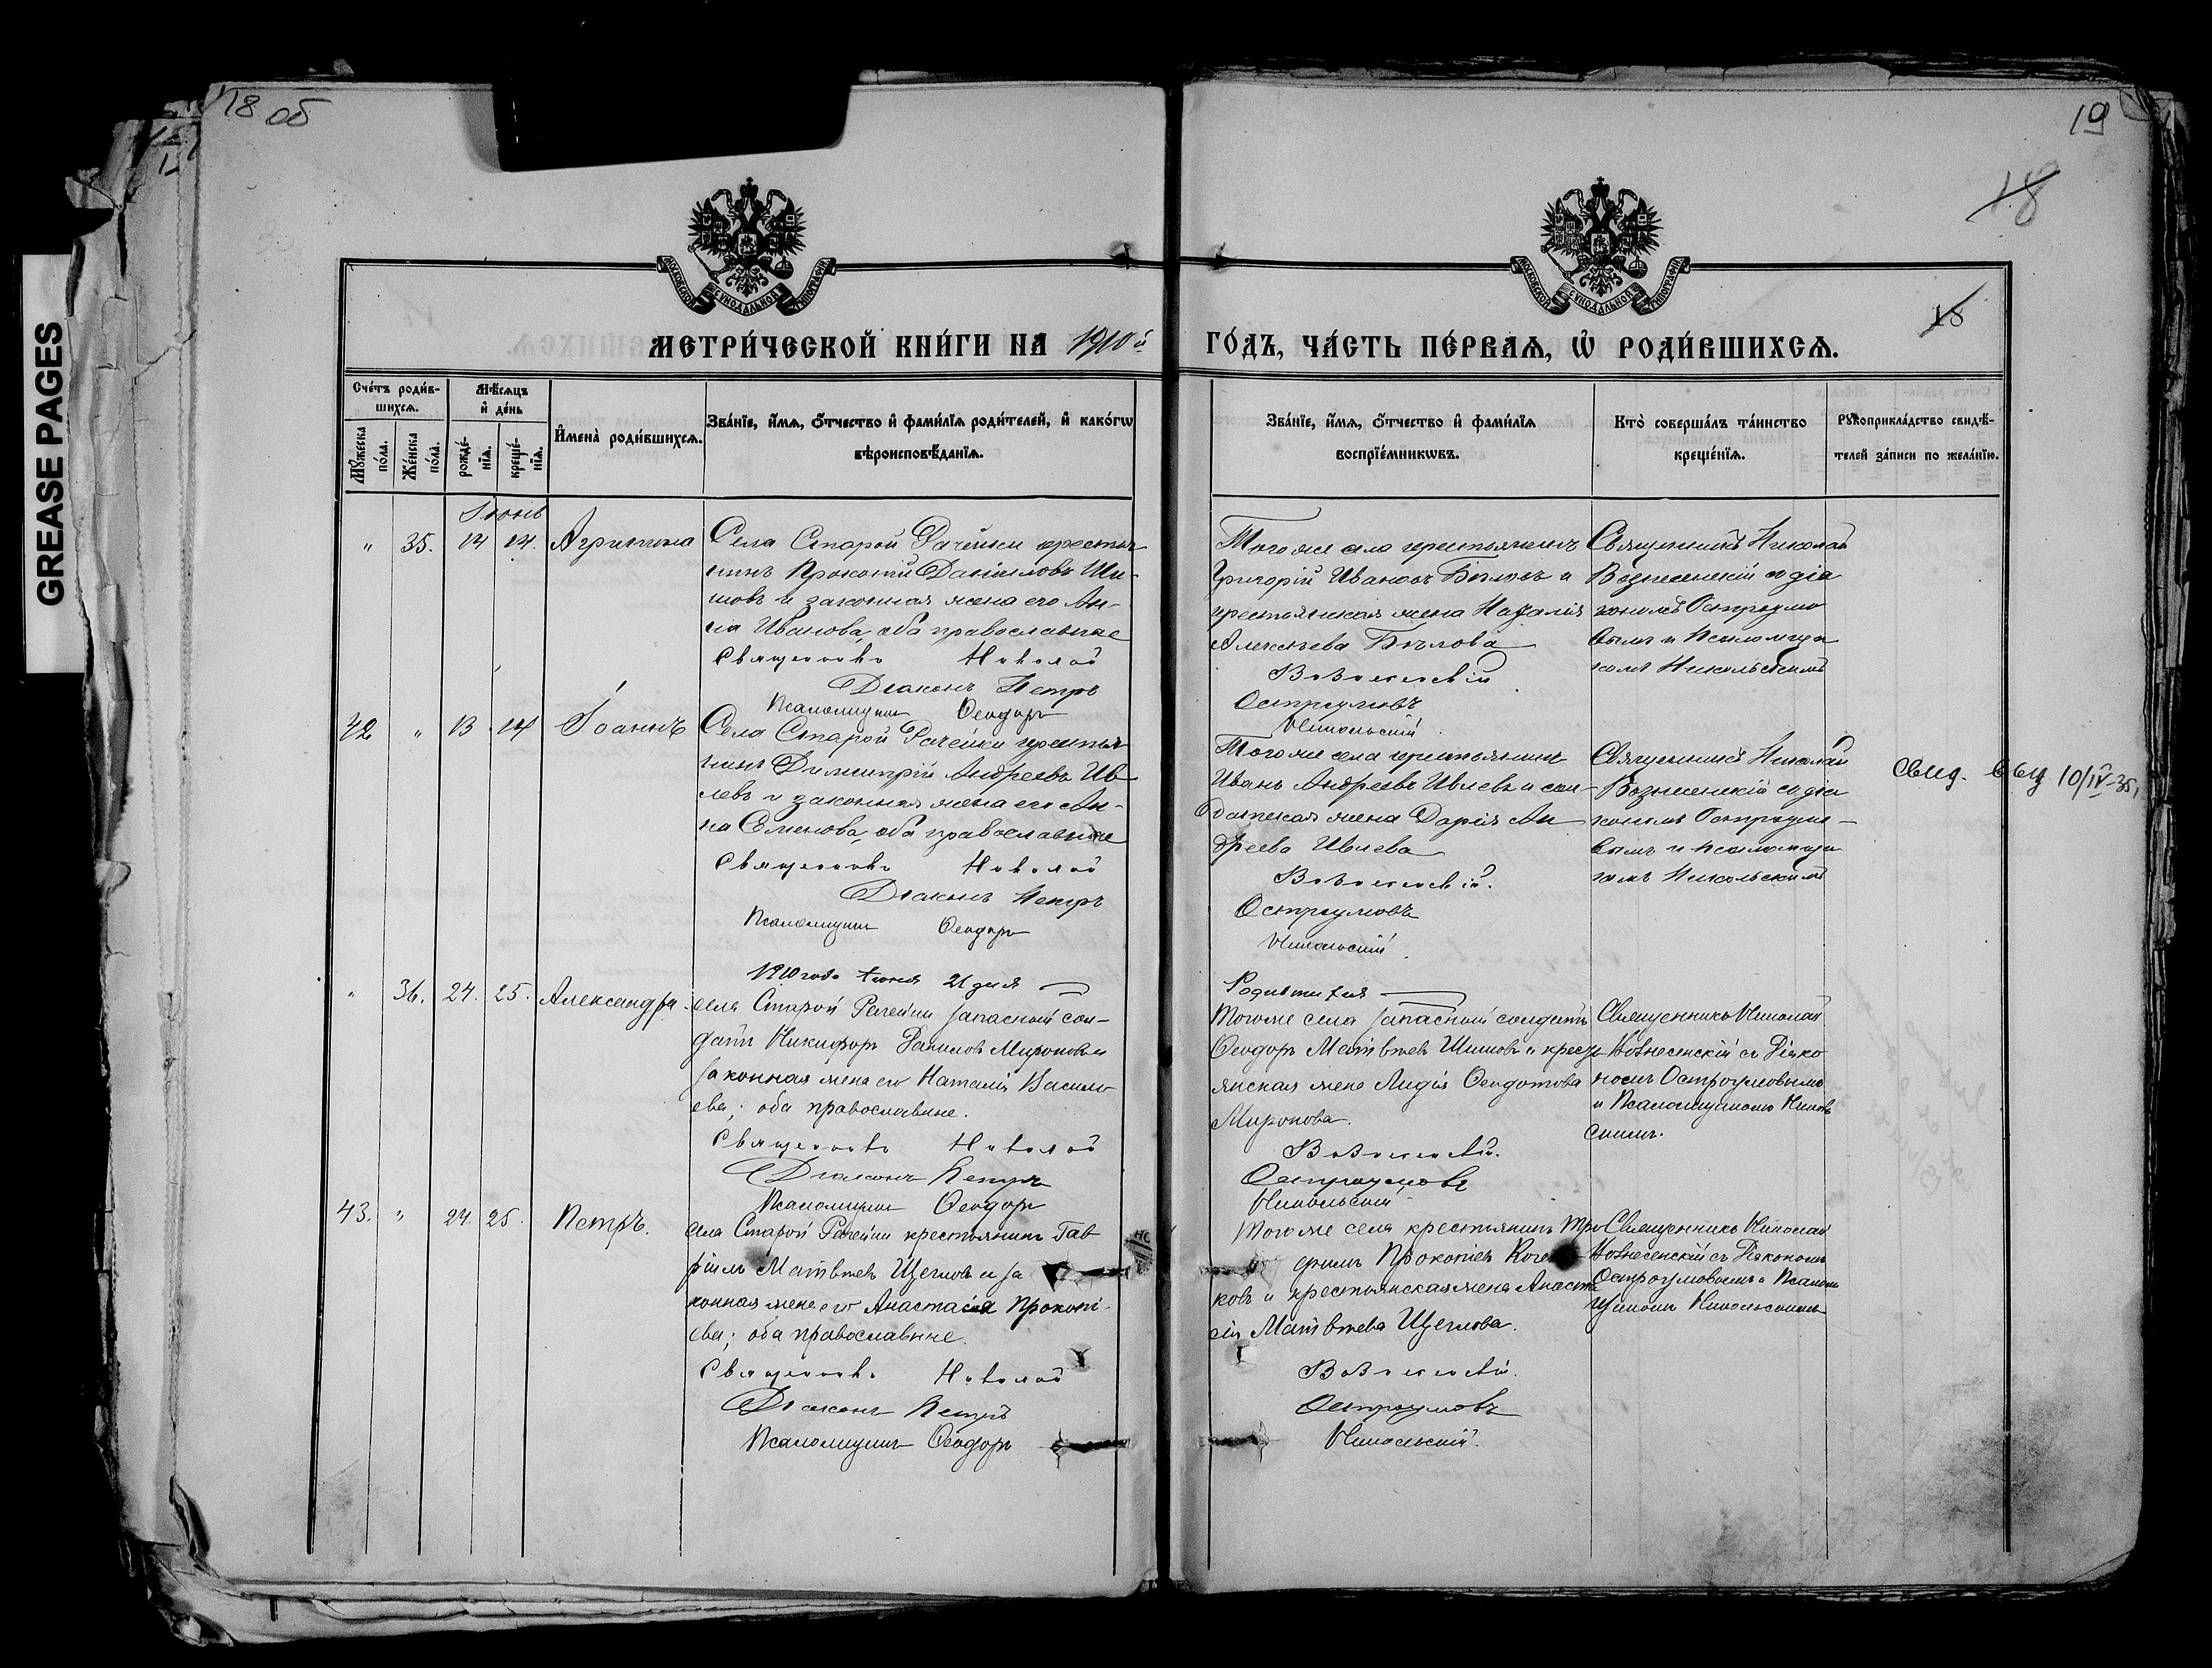 18 об
19
18
18
GREASE PAGES
МОСКОВСКОЙ СУНОДАЛЬНОЙ ТИПОГРАФIИ
МОСКОВСКОЙ СУНОДАЛЬНОЙ ТИПОГРАФIИ
МЕТРИ́ЧЕСКОЙ КНИ́ГИ НА 1910й
ГО́ДЪ, ЧА́СТЬ ПЕ́РВАѦ, Ѡ҆ РОДИ́ВШИХСѦ.
Сче́тъ роди́в-
шихсѧ.
Мꙋ́жеска
по́ла.
Же́нска
по́ла.
Мѣ́сѧцъ
и҆ де́нь
рожде́-
нїѧ.
креще́-
нїѧ.
И҆мена̀ роди́вшихсѧ.
Зва́нїе, и҆́мѧ, ѻ҆́тчество и҆ фами́лїѧ роди́телей, и҆ како́гѡ
вѣроисповѣ́данїѧ.
Зва́нїе, и҆́мѧ, ѻ҆́тчество и҆ фами́лїѧ
воспрїе́мникѡвъ.
Кто̀ соверша́лъ та́инство
креще́нїѧ.
Рꙋкоприкла́дство свидѣ́-
телей за́писи по жела́нїю.
Іюнь
" 35. 14 14. Агрипина
Села Старой Рачейки крестья
нинъ Прокопій Даніиловъ Ши-
шовъ и законная жена его Ан-
на Иванова, оба православные
Священникъ Николай
Діаконъ Петръ
Псаломщикъ Ѳеодоръ
Того же села крестьянинъ
Григорій Ивановъ Бѣловъ и
крестьянская жена Наталія
Алексѣева Бѣлова
Вознесенскій
Остроумовъ
Никольскій
Священникъ Николай
Вознесенскій съ діа
кономъ Остроумо
вымъ и псаломщи
комъ Никольскимъ
42 " 13 14 Іоаннъ
Села Старой Рачейки крестья
нинъ Димитрій Андреевъ Ив
левъ и законная жена его Ан-
на Семенова, оба православные
Священникъ Николай
Діаконъ Петръ
Псаломщикъ Ѳеодоръ
Того же села крестьянинъ
Иванъ Андреевъ Ивлевъ и сол-
датская жена Дарія Ан
дреева Ивлева
Вознесенскій.
Остроумовъ
Никольскій
Священникъ Николай
Вознесенскій съ діа
кономъ Остроумо-
вымъ и псаломщи
комъ Никольскимъ
Свид. 10/IV-35
1910 года Іюня 21 дня
" 36. 24. 25. Александра
села Старой Рачейки запасный сол-
датъ Никифоръ Даниловъ Мироновъ и
законная жена его Наталія Василь
ева; оба православные.
Священникъ Николай
Діаконъ Петръ
Псаломщикъ Ѳеодоръ
Тогоже села запасный солдатъ
Ѳеодоръ Матвѣевъ Шишовъ и крестъ
янская жена Лидія Ѳеодотова
Миронова.
Вознесенскій.
Остроумовъ
Никольскій
Священникъ Николай
Вознесенскій съ Діако
номъ Остроумовымъ
и Псаломщикомъ Николь
скимъ.
43. " 24. 25. Петръ.
села Старой Рачейки крестьянинъ Гав
ріилъ Матвѣевъ Щегловъ и за
конная жена его Анастасія Прокопі-
ева; оба православные.
Священникъ Николай
Діаконъ Петръ
Псаломщикъ Ѳеодоръ
Тогоже села крестьянинъ Тро
фимъ Прокопіевъ
ковъ и крестьянская жена Анаста
сія Матвѣева Щеглова.
Вознесенскій.
Остроумовъ
Никольскій.
Священникъ Николай
Вознесенскій съ Діакономъ
Остроумовымъ и Псалом
щикомъ Никольскимъ